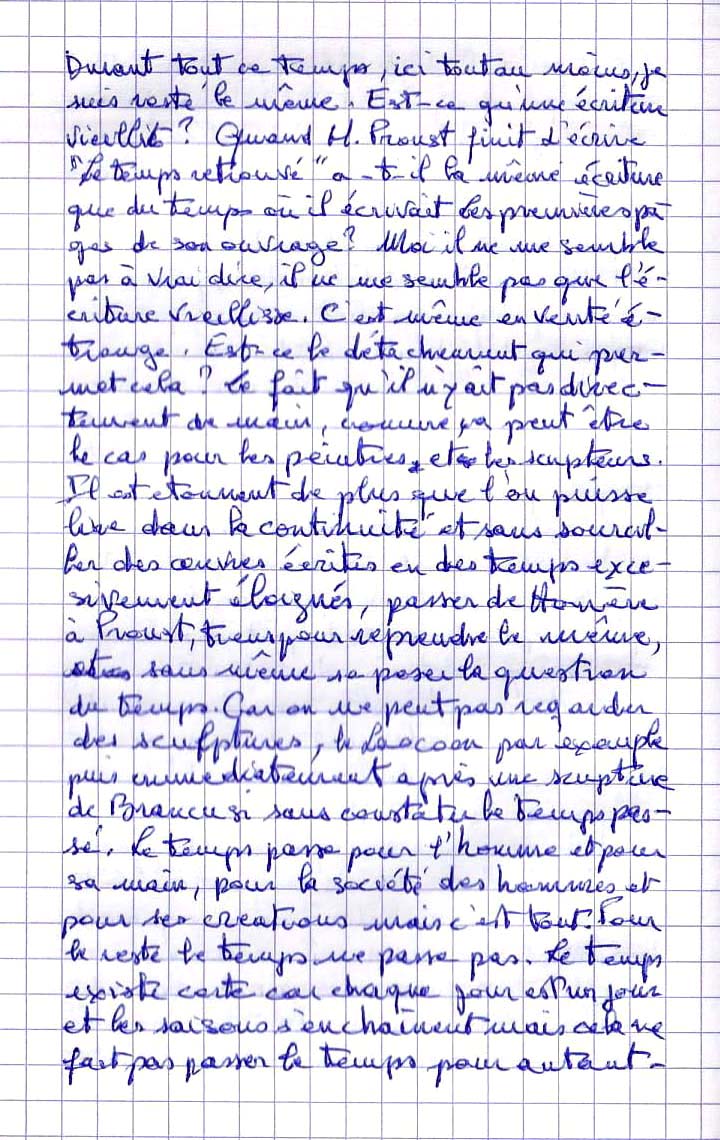 Durant tout ce temps, ici tout au moins, je
suis resté le même. Est-ce qu'une écriture
vieillit ? Quand M. Proust finit d'écrire
"Le temps retrouvé" a-t-il la même écriture
que du temps où il écrivait les premières pa
ges de son ouvrage? Moi il ne me semble
pas à vrai dire, il ne me semble pas que l'é-
criture vieillisse. C'est même en vérité é-
trange. Est-ce le détachement qui per-
met cela ? Le fait qu'il n'y ait pas direc-
tement de main, comme ça peut être
le cas pour les peintres et les scupteurs.
Il est etonnant de plus que l'on puisse
lire dans la continuité et sans sourcil-
ler des œuvres écrites en des temps exce-
sivement éloignés, passer de Homère
à Proust, tiens pour reprendre le même,
sans même se poser la question
du temps. Car on ne peut pas regarder
des sculptures, le Laocoon par exemple
puis immediatement après une scupture
de Brancusi sans constater le temps pas-
sé. Le temps passe pour l'homme et pour
sa main, pour la société des hommes et
pour ses creations mais c'est tout. Pour
le reste le temps ne passe pas. Le temps
existe certe car chaque jour est un jour
et les saisons s'enchaînent mais cela ne
fait pas passer le temps pour autant.